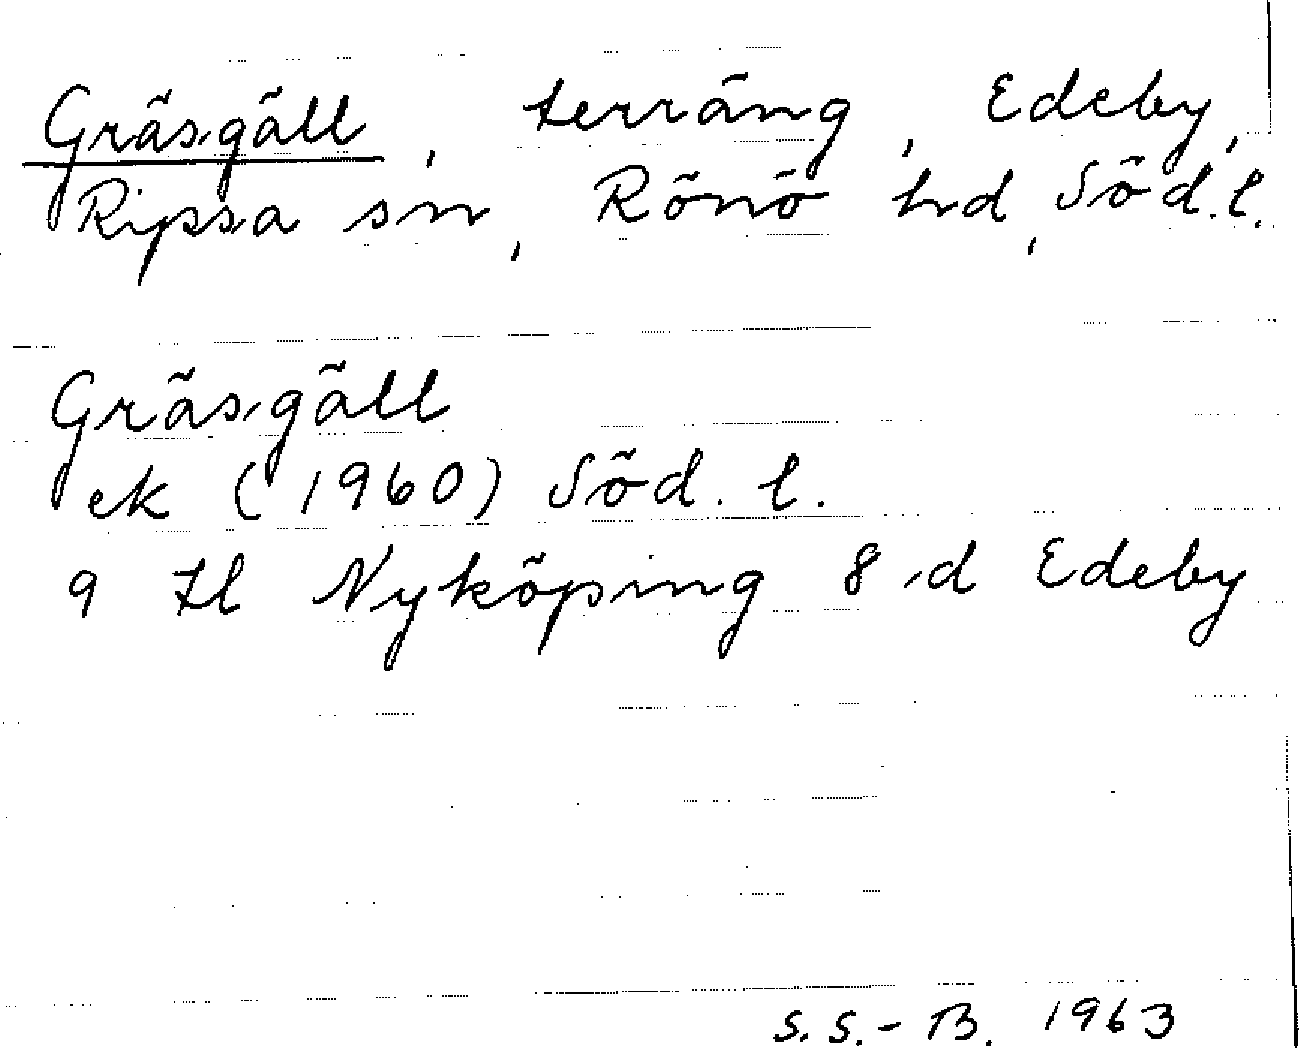 Gräsgäll, terräng, Edeby,
Ripsa sn, Rönö hd, Söd.l.
Gräsgäll
ek (1960) Söd. l.
9 H Nyköping 8 d Edeby
S.S.-B. 1963